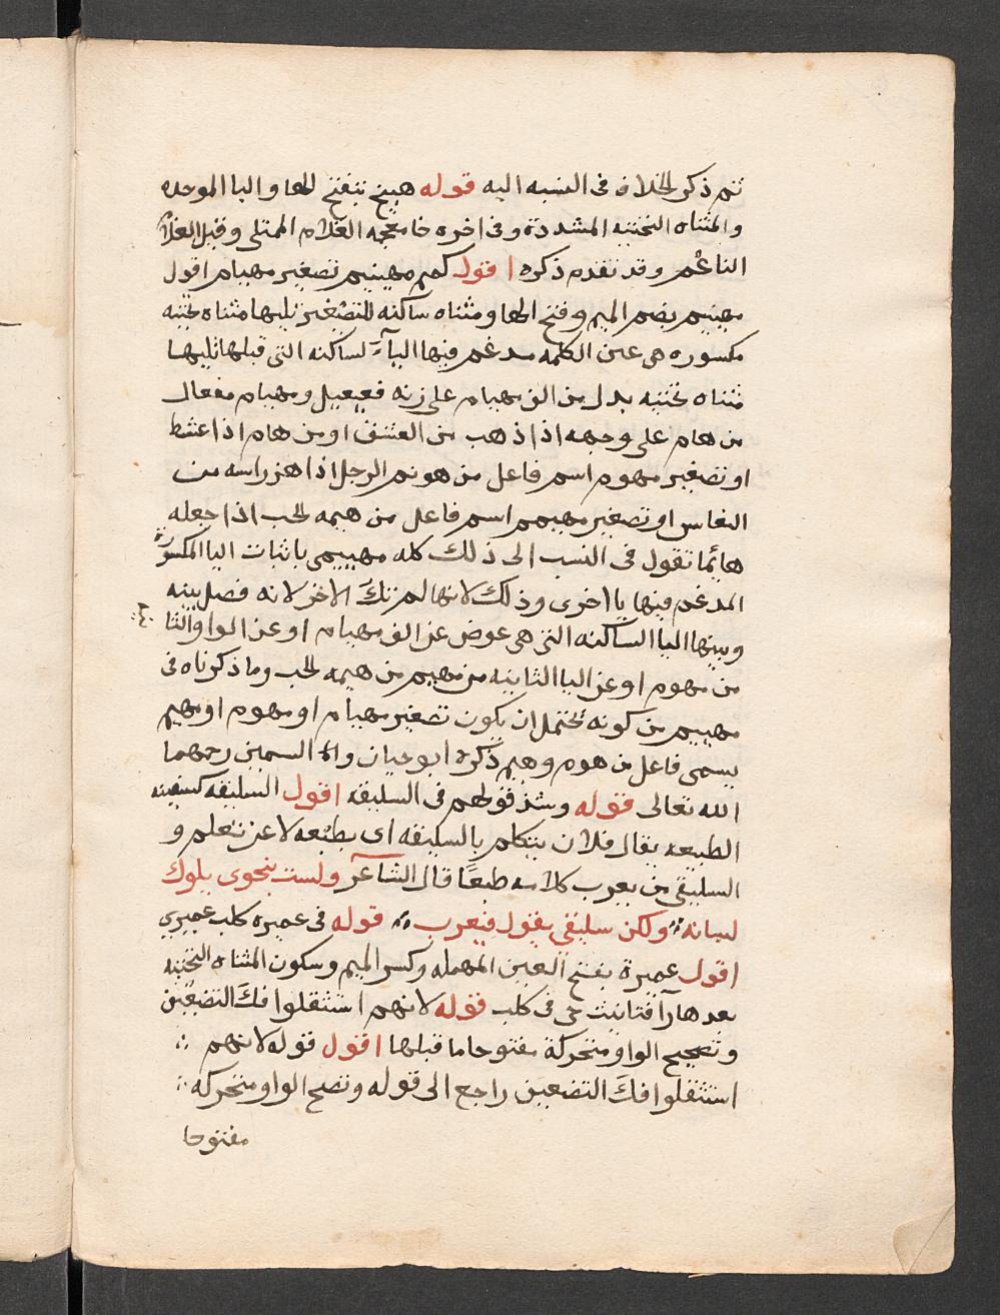 ثم ذكر الخلاف فى النسبه اليه قوله هبيخ بفتح الها والبا الموحده
والمثناه التحتيه المشددة وفى اخره خا معجمه الغلام الممتلى وقيل الغلام
الناعم وقد تقدم ذكره اقول كمهيم مهييم تصغير مهيام اقول
مهييم بضم الميم وفتح الها ومثناه ساكنه للتصغير تليها مثناه تحتيه
مكسوره هى عين الكلمه مدغم فيها اليآء لساكنه التى قبلها تليها
مثناه تحتيه بدل من الف مهيام على زنه فعيعيل ومهيام مفعال
من هام على وجهه اذا ذهب من العشق او من هام اذا عشط
او تصغير مهوم اسم فاعل من هوم الرجل اذا هز راسه من
النعاس او تصغير مهيم اسم فاعل من هيمه الحب اذا جعله
هائما تقول فى النسب الى ذلك كله مهييمى باثبات اليا المكسورة
المدغم فيها يا اخرى وذلك لانها لم تك الاخر لانه فصل بينه
وبينها اليا الساكنه التى هى عوض عن الف مهيام او عن الواو الثا
من مهوم او عن اليا الثانيه من مهيم من هيمه الحب وما ذكرناه فى
مهييم من كونه يحتمل ان يكون تصغير مهيام او مهوم او مهيم
يسمى فاعل من هوم وهيم ذكره ابو حيان والسمين رحمهما
الله تعالى قوله وشذ قولهم فى السليقه اقول السليقه كسفينه
الطبيعه يقال فلان يتكلم بالسليقه اى بطبعه لا عن تعلم و
السليقى من يعرب كلامه طبعًا قال الشاعر ولست بنحوى يلوك
لسانه ولكن سليقى يقول فيعرب قوله فى عميره كلب عميرى
اقول عميرة بفتح العين المهمله وكسر الميم وسكون المثناه التحتيه
بعدها رآ فتانيث حى فى كلب قوله لانهم استثقلوا فك التضعيف
وتصحيح الواو متحركة مفتوحا ما قبلها اقول قوله لانهم
استثقلوا فك التضعيف راجع الى قوله وتصح الواو متحركه
مفتوحا